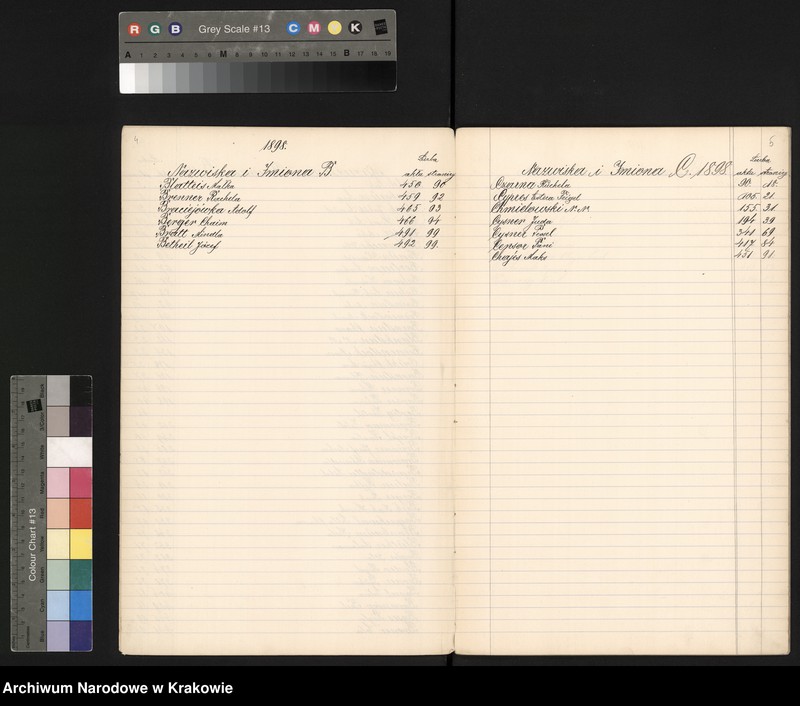 R G B Grey Scale #13 C M Y K
A 1 2 3 4 5 6 M 8 9 10 11 12 13 14 15 B 17 18 19
4
1898.
Liczba
Nazwiska i Imiona B
aktu stronicy
Blatteis Malka 450 90
Brenner Rachela 459 92
Braciejówka Adolf 465 93
Berger Chaim 466 94
Bratt Aindla 491 99
Betheil Józef 492 99.
5
Liczba
Nazwiska i Imiona C. 1898
aktu stronicy
Czarna Rachela 90. 18.
Cypres Estera Feigel 105. 21.
Chmielowski N.N. 155. 31.
Cysner Juda 194 39
Cysner 341 69
417 84
Chajes Maks 451 91
Colour Chart #13
Blue Cyan Green Yellow Red Magenta White Black
Archiwum Narodowe w Krakowie